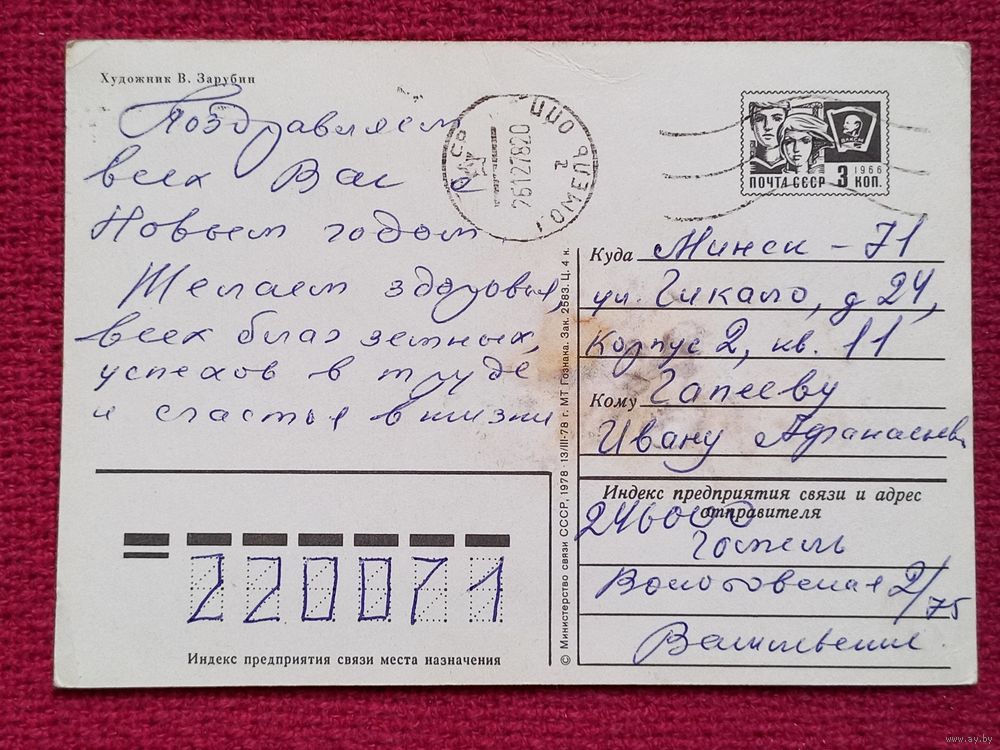 Художник В. Зарубин
Поздравляем
всех Вас с
Новым годом.
Желаем здоровья,
всех благ земных,
успехов в труде
и счастья в жизни
СССР
26127820
ГОМЕЛЬ 2
ЦПО
ВЛКСМ
1966
ПОЧТА СССР 3 КОП.
Куда Минск - 71
ул. Гикало, д 24,
корпус 2, кв. 11
Кому Гапееву
Ивану Афанасьев
Индекс предприятия связи и адрес
отправителя
246000
Гомель
Волотовская 2/75
© Министерство связи СССР, 1978 · 13/III-78 г. МТ Гознака. Зак. 2583. Ц. 4 к.
220071
Индекс предприятия связи места назначения
www.ay.by